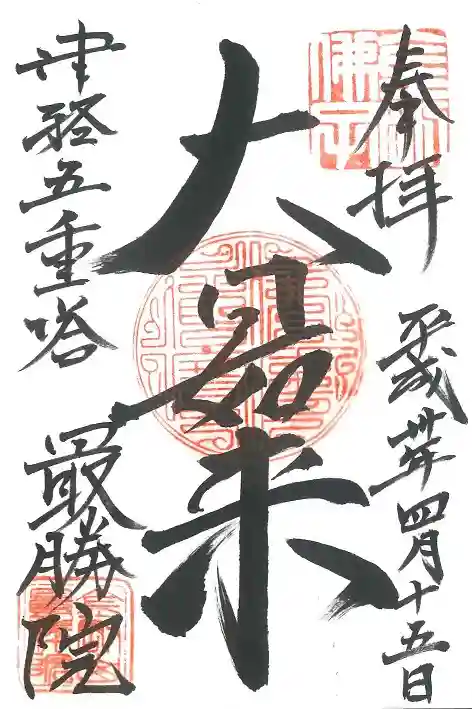 奉拝
平成卅年四月十五日
大日如来
津軽五重塔
最勝院